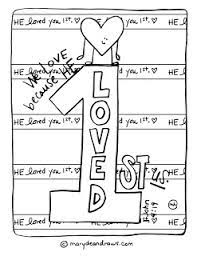 HE loved you 1st. ♡ HE loved you 1st. ♡
HE loved you 1st. ♡
We LOVE
because HE
1
LOVED
US
1ST
HE loved you HE loved you 1st.
HE loved you HE
I John
4:19
HE loved you HE
© marydeandraws.com